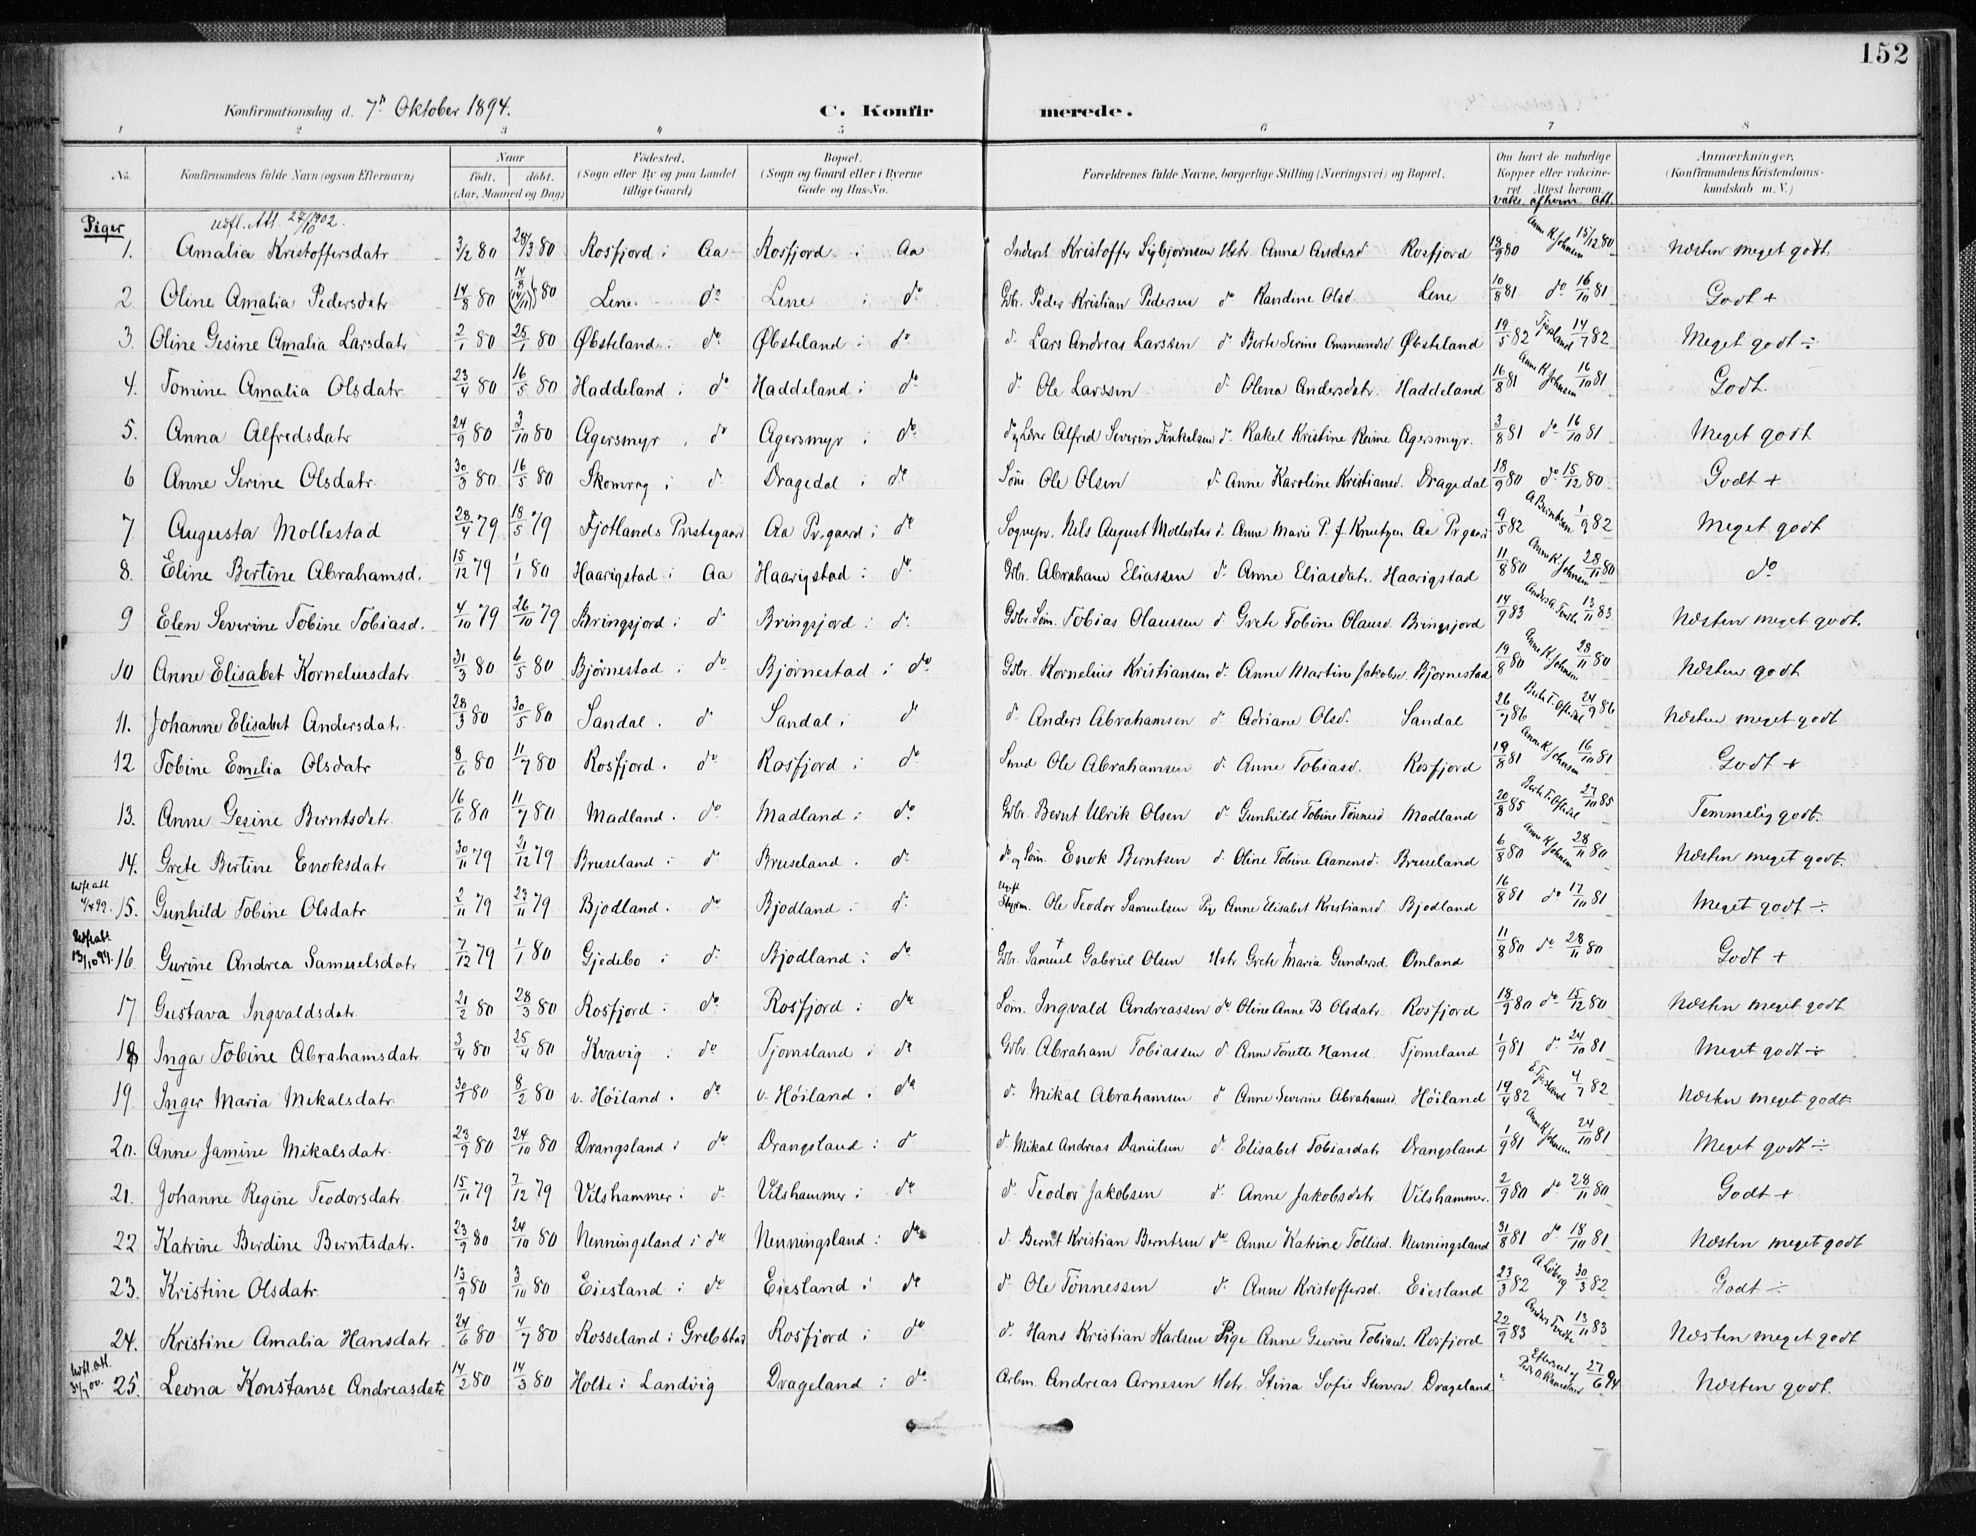 152
Konfirmationsdag d. 7de Oktober 1894. C. Konfirmerede.
1 2 3 4 5 6 7 8
No. Konfirmandens fulde Navn (ogsaa Efternavn) Naar født. døbt. (Aar, Maaned og Dag) Fødested. (Sogn eller By og paa Landet tillige Gaard) Bopæl. (Sogn og Gaard eller i Byerne Gade og Hus-No. Forældrenes fulde Navne, borgerlige Stilling (Næringsvei) og Bopæl. Om havt de naturlige Kopper eller vaccineret. Attest herom. Anmærkninger. (Konfirmandens Kristendomskundskab m. V.)
vaks. af hvem. Att.
Piger
Udfl. Att. 27/10 1902.
1. Amalia Kristoffersdatr 3/2 80 28/3 80 Rosfjord i Aa Rosfjord i Aa Inderst Kristoffer Sigbjørnsen Hstr. Anna Andersd Rosfjord 18/9 80 Anne K Johnsen 15/12 80 Næsten meget godt.
2. Oline Amalia Pedersdatr 14/8 80 14/8 (14/11) 80 Lene do Lene i do Gbr. Peder Kristian Pedersen do Randine Olsd. Lene 10/8 81 do 16/10 81 Godt +
3. Oline Gesine Amalia Larsdatr 2/1 80 25/1 80 Øbsteland i do Øbsteland i do d. Lars Andreas Larssen do Berte Serine Ammundsd Øbsteland 19/5 82 Tjøsland 14/7 82 Meget godt ÷
4. Tomine Amalia Olsdatr 23/4 80 16/5 80 Haddeland i do Haddeland i do d. Ole Larssen do Olena Andersdatr. Haddeland 16/8 81 Anne K Johnsen 16/10 81 Godt.
5. Anna Alfredsdatr 24/9 80 3/10 80 Agersmyr i do Agersmyr i do d. og Lærer Alfred Severin Finkelsen do Rakel Kristine Reime Agersmyr. 3/8 81 do 16/10 81 Meget godt
6 Anne Serine Olsdatr 30/3 80 16/5 80 Skomrag i do Dragedal i do Søm. Ole Olsen do Anne Karoline Kristiansd. Dragedal 18/9 80 do 15/12 80 Godt +
7 Augusta Mollestad 28/4 79 18/5 79 Fjotlands Prestegaard Aa Pr.gaard i do Sognepr. Nils August Mollestad d. Anne Marie P. f. Knutzen Aa Pr gaard 9/5 82 A Berntsen 1/9 82 Meget godt
8. Eline Bertine Abrahamsd. 15/12 79 1/1 80 Haarigstad i Aa Haarigstad i do Gbr. Abraham Eliassen do Anne Eliasdatr. Haarigstad 11/8 80 Anne K Johnsen 28/11 80 do
9 Elen Severine Tobine Tobiasd. 4/10 79 26/10 79 Bringsjord i do Bringsjord i do Gbr. Søm. Tobias Olaussen do Grete Tobine Olausd. Bringsjord 14/9 83 13/11 83 Næsten meget godt.
10 Anne Elisabet Korneliusdatr 31/3 80 6/5 80 Bjørnestad i do Bjørnestad i do Gbr. Kornelius Kristiansen do Anne Martine Jakobsd. Bjørnestad 19/8 80 Anne K Johnsen 28/11 80 Næsten godt
11. Johanne Elisabet Andersdatr. 28/3 80 30/5 80 Sandal i do Sandal i do d. Anders Abrahamsen do Adriane Olsd. Sandal 26/7 86 Berte T. Oftedal 24/9 86 Næsten meget godt
12 Tobine Emelia Olsdatr 8/6 80 11/7 80 Rosfjord i do Rosfjord i do Smed Ole Abrahamsen do Anne Tobiasd. Rosfjord 19/8 81 Anne K. Johnsen 16/10 81 Godt +
13. Anne Gesine Berntsdatr. 16/6 80 11/7 80 Madland i do Madland i do Gbr. Bernt Ulrik Olsen do Gunhild Tobine Tønnesd Madland 20/8 85 Berte T. Oftedal 27/10 85 Temmelig godt.
14. Grete Bertine Enoksdatr 30/11 79 21/12 79 Bruseland i do Bruseland do do og Søm. Enok Berntsen do Oline Tobine Aanensd. Bruseland 6/8 80 Anne K Johnsen 28/11 80 Næsten meget godt.
Udfl. att 4/4 99. 15. Gunhild Tobine Olsdatr 2/11 79 23/11 79 Bjodland i do Bjodland i do Ugift Styrm. Ole Teodor Samuelsen Pige Anne Elisabet Kristiansd Bjodland 16/8 81 do 17/10 81 Meget godt ÷
Udfl. att. 13/10 99. 16 Gurine Andrea Samuelsdatr 7/12 79 1/1 80 Gjedebo i do Bjodland i do Gbr. Samuel † Gabriel Olsen Hstr Grete † Maria Gundersd. Omland 11/8 80 do 28/11 80 Godt +
17 Gustava Ingvaldsdatr 21/2 80 28/3 80 Rosfjord i do Rosfjord i do Søm. Ingvald Andreassen do Oline Anne B Olsdatr Rosfjord 18/9 80 do 15/12 80 Næsten meget godt
18 Inga Tobine Abrahamsdatr. 3/4 80 25/4 80 Kvavig i do Tjomsland i do Gbr. Abraham Tobiassen do Anne Tonette Hansd. Tjomsland 1/9 81 do 24/10 81 Meget godt ÷
19 Inger Maria Mikalsdatr. 30/1 80 8/2 80 v. Høiland. do v. Høiland. do d. Mikal Abrahamsen do Anne Severine Abrahamsd. Høiland 19/4 82 E. Tjøsland 4/7 82 Næsten meget godt
20. Anne Jamine Mikalsdatr. 23/9 80 24/10 80 Drangsland i do Drangsland i do d. Mikal Andreas Danielsen do Elisabet Tobiasdatr Drangsland 1/9 81 Anne K Johnsen 24/10 81 Meget godt ÷
21. Johanne Regine Teodorsdatr. 15/11 79 7/12 79 Vilshammer i do Vilshammer i do d. Teodor Jakobsen do Anne Jakobsdatr. Vilshammer. 2/9 80 do 28/11 80 Godt +
22 Katrine Berdine Berntsdatr. 23/9 80 24/10 80 Nenningsland i do Nenningsland i do d. Bernt Kristian Berntsen do Anne Katrine Tollisd. Nenningsland 31/8 81 do 18/10 81 Næsten meget godt
23. Kristine Olsdatr. 13/9 80 3/10 80 Eiesland i do Eiesland i do d. Ole Tønnessen do Anne Kristoffersd. Eiesland 23/3 82 30/3 82 Godt ÷
24. Kristine Amalia Hansdatr 24/6 80 4/7 80 Rosseland i Grebstad Rosfjord i do d. Hans Kristian Karlsen Pige Anne Gurine Tobiasd. Rosfjord 22/9 83 13/11 83 Næsten meget godt
Udfl. att. 25. Leona Konstanse Andreasdatr 14/2 80 14/3 80 Holte i Landvig Drageland i do Arbm. Andreas Arnesen Hstr. Stina Sofie Drageland 27/6 94 Næsten godt.